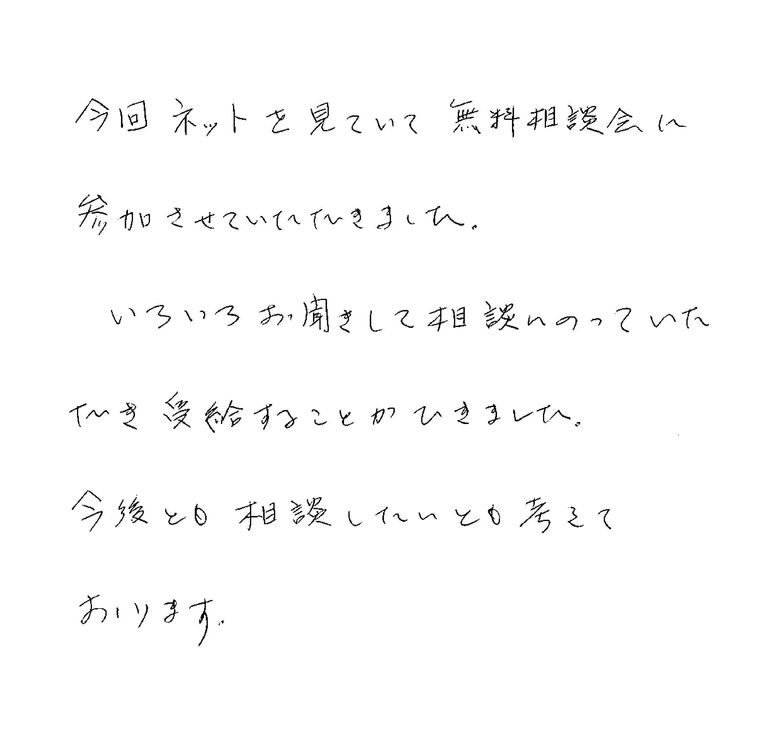 今回ネットを見ていて無料相談会に
参加させていただきました。
いろいろお聞きして相談にのっていた
だき受給することができました。
今後とも相談したいとも考えて
おります。